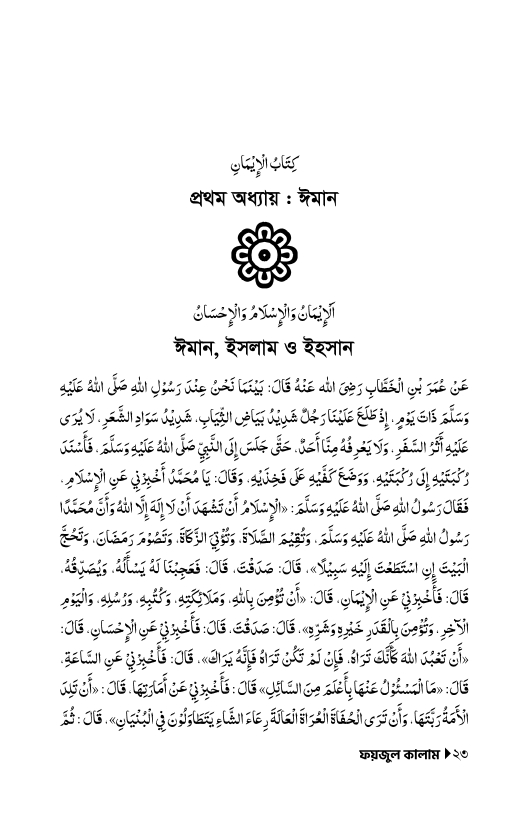 كِتَابُ الْإِيْمَانِ
প্রথম অধ্যায় : ঈমান
اَلْإِيْمَانُ وَالْإِسْلَامُ وَالْإِحْسَانُ
ঈমান, ইসলাম ও ইহসান
عَنْ عُمَرَ بْنِ الْخَطَّابِ رَضِيَ الله عَنْهُ قَالَ: بَيْنَمَا نَحْنُ عِنْدَ رَسُوْلِ اللهِ صَلَّى اللهُ عَلَيْهِ
وَسَلَّمَ ذَاتَ يَوْمٍ، إِذْ طَلَعَ عَلَيْنَا رَجُلٌ شَدِيْدُ بَيَاضِ الثِّيَابِ، شَدِيْدُ سَوَادِ الشَّعَرِ، لَا يُرَى
عَلَيْهِ أَثَرُ السَّفَرِ، وَلَا يَعْرِفُهُ مِنَّا أَحَدٌ، حَتَّى جَلَسَ إِلَى النَّبِيِّ صَلَّى اللهُ عَلَيْهِ وَسَلَّمَ، فَأَسْنَدَ
رُكْبَتَيْهِ إِلَى رُكْبَتَيْهِ، وَوَضَعَ كَفَّيْهِ عَلَى فَخِذَيْهِ، وَقَالَ: يَا مُحَمَّدُ أَخْبِرْنِيْ عَنِ الْإِسْلَامِ،
فَقَالَ رَسُوْلُ اللهِ صَلَّى اللهُ عَلَيْهِ وَسَلَّمَ: «الْإِسْلَامُ أَنْ تَشْهَدَ أَنْ لَا إِلَهَ إِلَّا اللهُ وَأَنَّ مُحَمَّدًا
رَسُوْلُ اللهِ صَلَّى اللهُ عَلَيْهِ وَسَلَّمَ، وَتُقِيْمَ الصَّلَاةَ، وَتُؤْتِيَ الزَّكَاةَ، وَتَصُوْمَ رَمَضَانَ، وَتَحُجَّ
الْبَيْتَ إِنِ اسْتَطَعْتَ إِلَيْهِ سَبِيْلًا»، قَالَ: صَدَقْتَ، قَالَ: فَعَجِبْنَا لَهُ يَسْأَلُهُ، وَيُصَدِّقُهُ،
قَالَ: فَأَخْبِرْنِيْ عَنِ الْإِيْمَانِ، قَالَ: «أَنْ تُؤْمِنَ بِاللهِ، وَمَلَائِكَتِهِ، وَكُتُبِهِ، وَرُسُلِهِ، وَالْيَوْمِ
الْآخِرِ، وَتُؤْمِنَ بِالْقَدَرِ خَيْرِهِ وَشَرِّهِ»، قَالَ: صَدَقْتَ، قَالَ: فَأَخْبِرْنِيْ عَنِ الْإِحْسَانِ، قَالَ:
«أَنْ تَعْبُدَ اللهَ كَأَنَّكَ تَرَاهُ، فَإِنْ لَمْ تَكُنْ تَرَاهُ فَإِنَّهُ يَرَاكَ»، قَالَ: فَأَخْبِرْنِيْ عَنِ السَّاعَةِ،
قَالَ: «مَا الْمَسْئُوْلُ عَنْهَا بِأَعْلَمَ مِنَ السَّائِلِ» قَالَ: فَأَخْبِرْنِيْ عَنْ أَمَارَتِهَا، قَالَ: «أَنْ تَلِدَ
الْأَمَةُ رَبَّتَهَا، وَأَنْ تَرَى الْحُفَاةَ الْعُرَاةَ الْعَالَةَ رِعَاءَ الشَّاءِ يَتَطَاوَلُوْنَ فِي الْبُنْيَانِ»، قَالَ: ثُمَّ
ফয়জুল কালাম ▶ ২৩